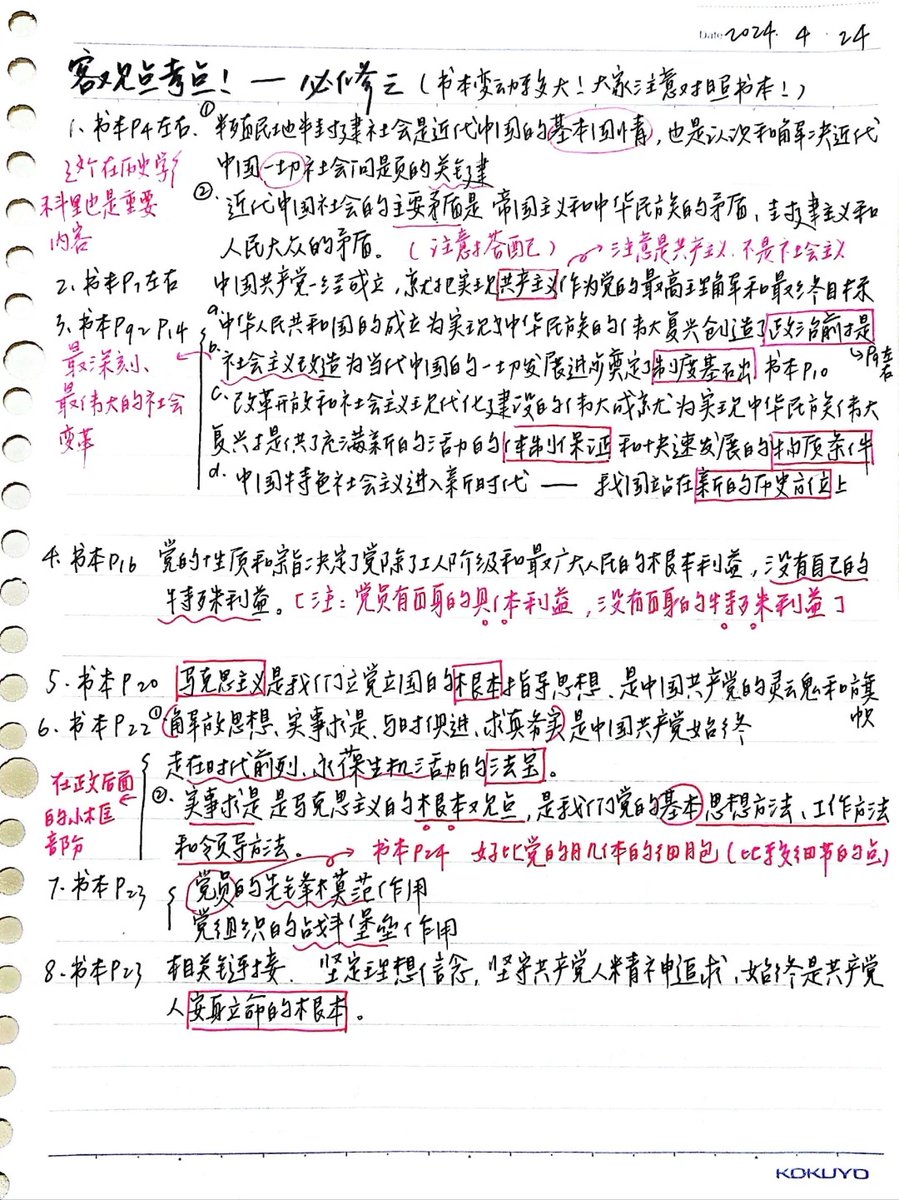 Date 2024. 4. 24
客观点考点！— 必修三（书本变动较大！大家注意对照书本！）
1. 书本P4左右. ① 半殖民地半封建社会是近代中国的基本国情，也是认识和解决近代
中国一切社会问题的关键
这个在历史学
科里也是重要
内容
②. 近代中国社会的主要矛盾是 帝国主义和中华民族的矛盾，封建主义和
人民大众的矛盾。（注意搭配） 注意是共产主义. 不是社会主义
2. 书本P7左右 中国共产党一经成立，就把实现共产主义作为党的最高理想和最终目标
3. 书本P9~P14 a. 中华人民共和国的成立为实现中华民族的伟大复兴创造了政治前提
→P8左右
b. 社会主义改造为当代中国的一切发展进步奠定了制度基础 书本P10
最深刻、
最伟大的社会
变革
c. 改革开放和社会主义现代化建设的伟大成就为实现中华民族伟大
复兴提供了充满新的活力的体制保证和快速发展的物质条件
d. 中国特色社会主义进入新时代 —— 我国站在新的历史方位上
4. 书本P16 党的性质和宗旨决定了党除了工人阶级和最广大人民的根本利益，没有自己的
特殊利益。［注：党员有自身的具体利益，没有自身的特殊利益］
5. 书本P20 马克思主义是我们立党立国的根本指导思想、是中国共产党的灵魂和旗
帜
6. 书本P22 ① 解放思想、实事求是、与时俱进、求真务实是中国共产党始终
走在时代前列、永葆生机活力的法宝。
在正文后面
的小框
部分
②. 实事求是 是马克思主义的根本观点，是我们党的基本思想方法、工作方法
和领导方法。 书本P24 好比党的肌体的细胞（比较细节的点）
7. 书本P23 党员的先锋模范作用
党组织的战斗堡垒作用
8. 书本P23 相关链接、坚定理想信念，坚守共产党人精神追求，始终是共产党
人安身立命的根本。
KOKUYO